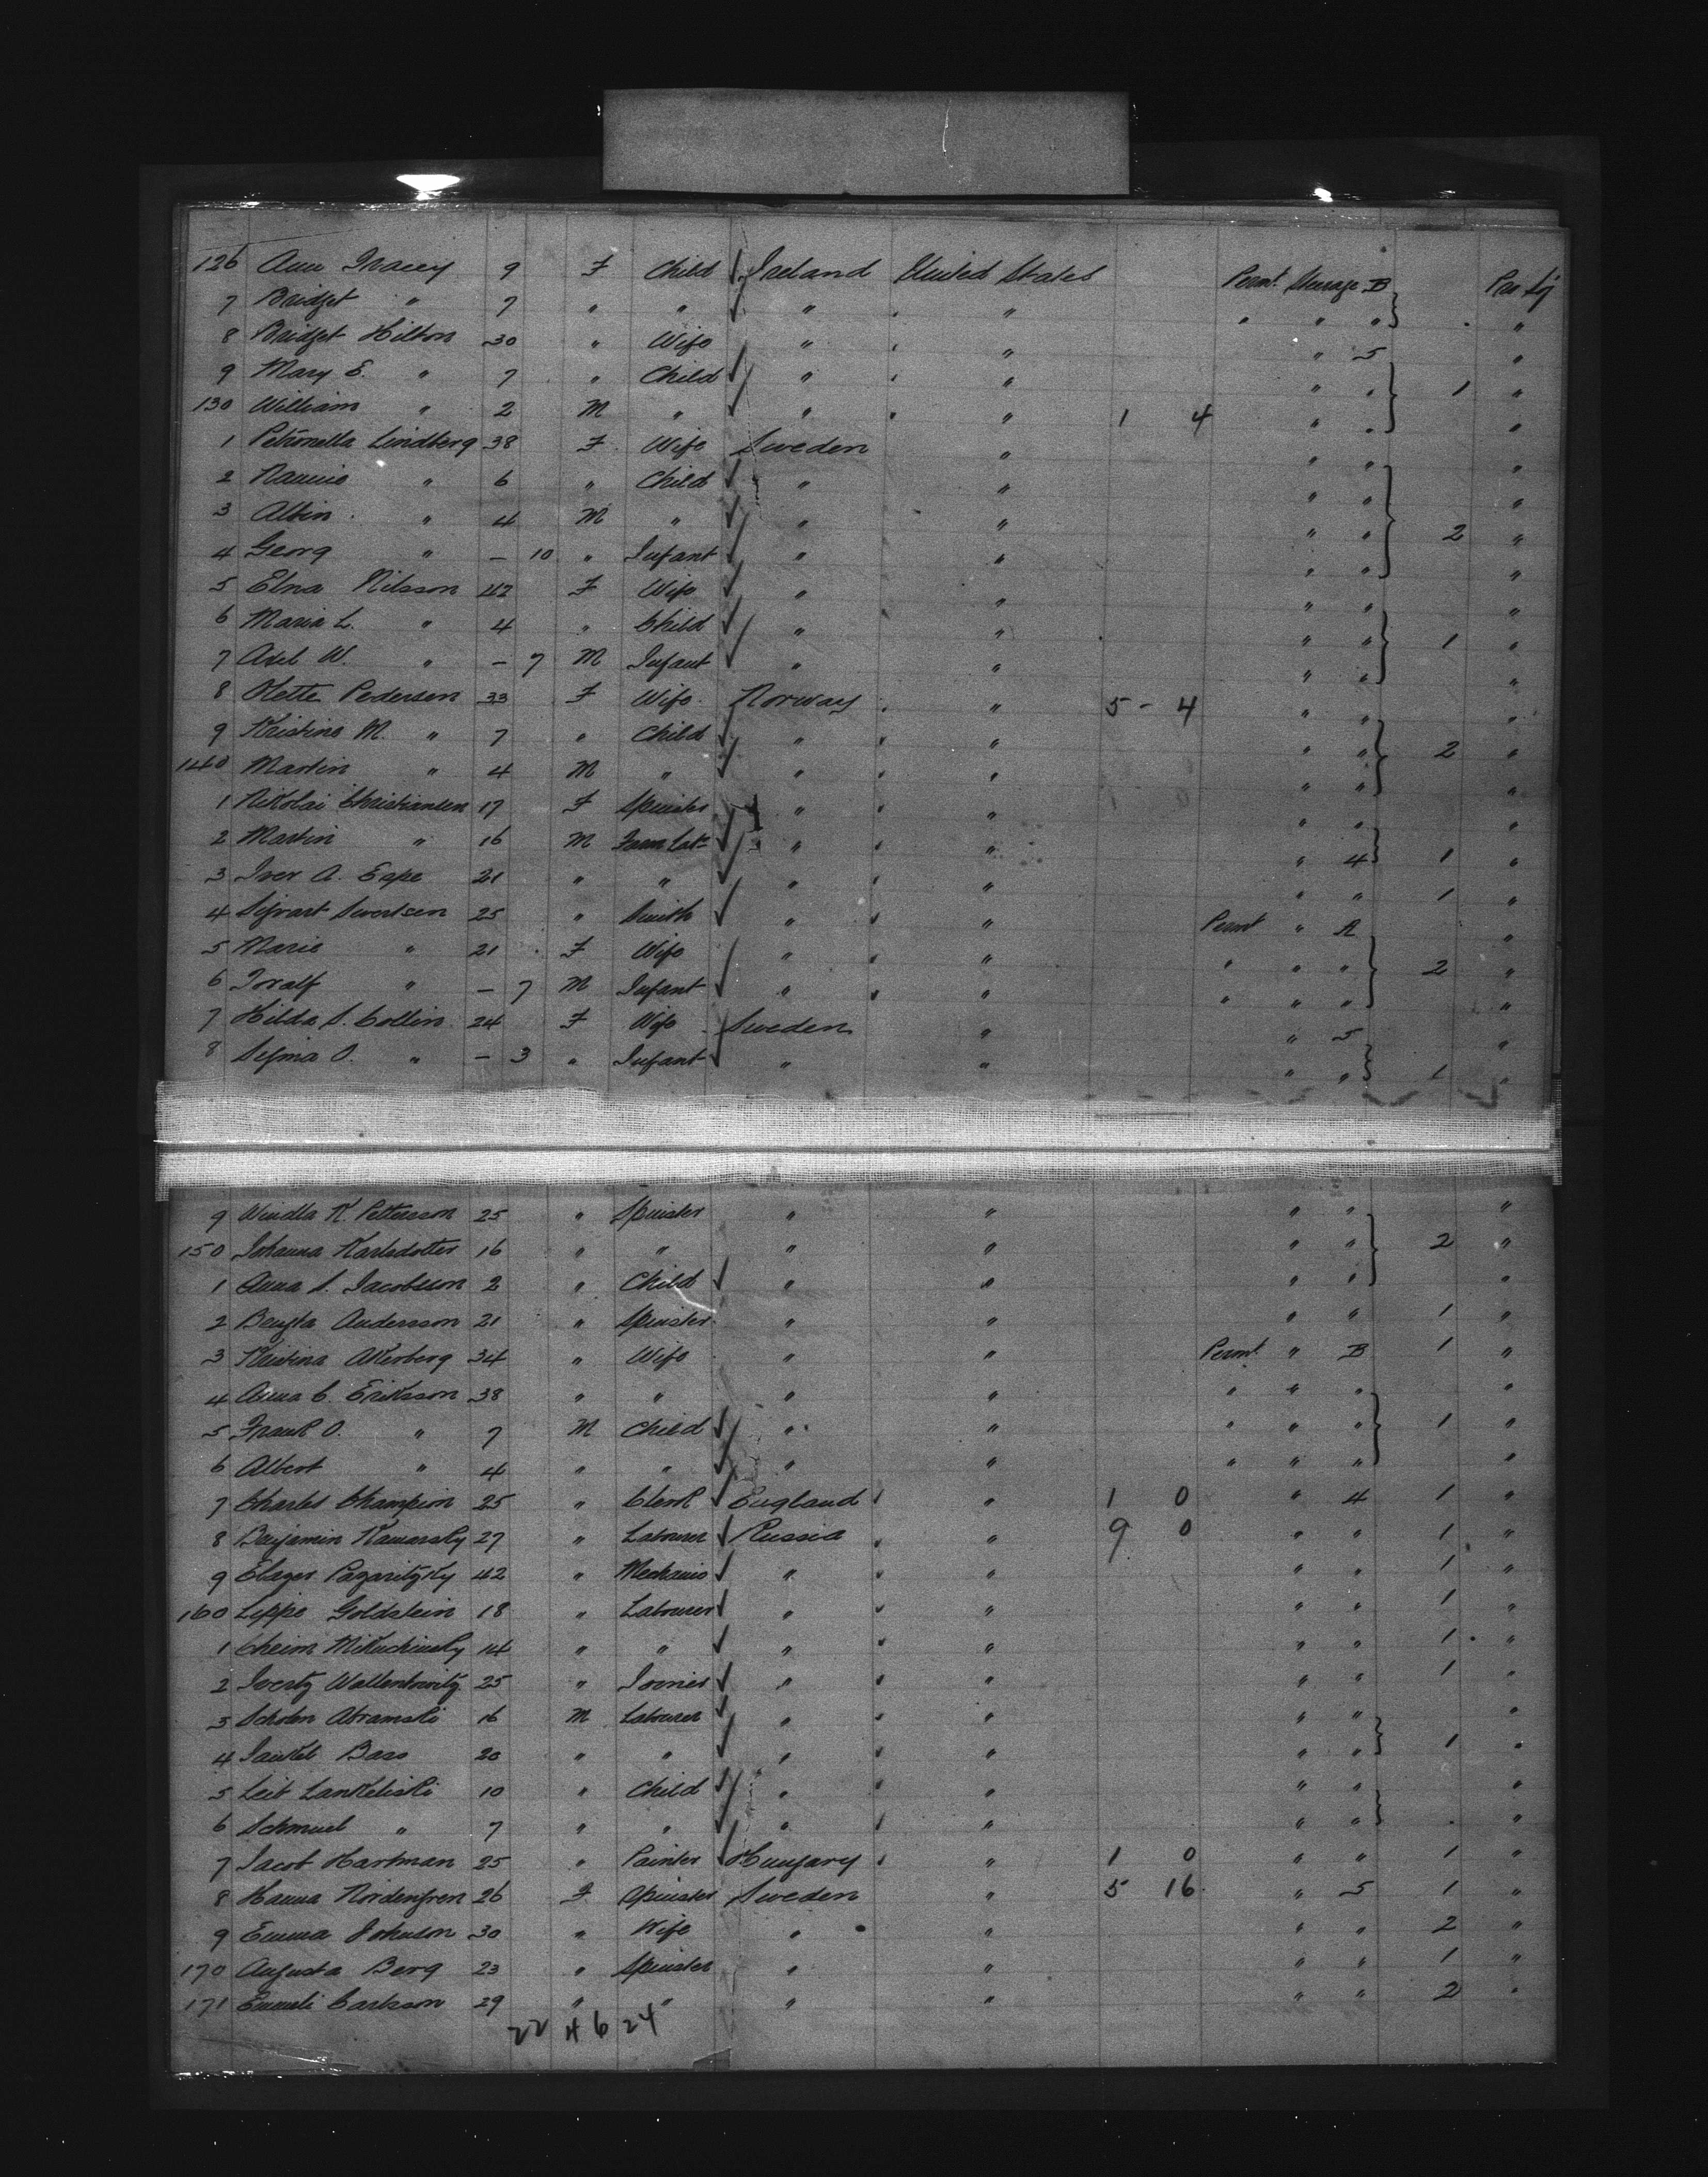 126 Ann Tracey 9 F Child Ireland United States Permt Steerage B
7 Bridget " 7 " " " " " " " "
8 Bridget Hilton 30 " Wife " " " 5 "
9 Mary E. " 7 " Child " " " " 1 "
130 William " 2 M " " " 1 4 " " "
1 Petronella Lindberg 38 F Wife Sweden " " " "
2 " 6 " Child " " " " "
3 Albin " 4 M " " " " " 2 "
4 Georg " – 10 " Infant " " " " "
5 Elna Nilsson 42 F Wife " " " " "
6 Maria L. " 4 " Child " " " " 1 "
7 Axel W. " – 7 M Infant " " " " "
8 Olette Pedersen 33 F Wife Norway " 5 - 4 " " "
9 Kristine M. " 7 " Child " " " " 2 "
140 Martin " 4 M " " " " " "
1 Nikolai Christiansen 17 F Spinster " " " " "
2 Martin " 16 M Farm Labr " " " 4 1 "
3 Iver A. Espe 21 " " " " " " 1 "
4 Sivertsen 25 " Smith " " Permt " A "
5 Marie " 21 F Wife " " " " " 2 "
6 Toralf " – 7 M Infant " " " " " "
7 Hilda S. Collin 24 F Wife Sweden " " 5 "
8 O. " – 3 " Infant " " " " 1 "
9 Wendla K Petterson 25 " Spinster " " " " "
150 Johanna Karlsdotter 16 " " " " " " 2 "
1 Anna S. Jacobsson 2 " Child " " " " "
2 Bengta Andersson 21 " Spinster " " " " 1 "
3 Kristina Akerberg 34 " Wife " " Permt " B 1 "
4 Anna C. Eriksson 38 " " " " " " " "
5 Frank O. " 7 M Child " " " " " 1 "
6 Albert " 4 " " " " " " " "
7 Charles Champion 25 " Clerk England " 1 0 " 4 1 "
8 Benjamin Kamarsky 27 " Labourer Russia " 9 0 " " 1 "
9 42 " Mechanic " " " " 1 "
160 Lippe Goldstein 18 " Labourer " " " " 1 "
1 Cheim 14 " " " " " " 1 "
2 25 " Joiner " " " " 1 "
3 Scholem Abramski 16 M Labourer " " " " "
4 Jankel Bass 20 " " " " " " 1 "
5 Leib Lankeliski 10 " Child " " " " "
6 Schmuel " 7 " " " " " " "
7 Jacob Hartman 25 " Painter Hungary " 1 0 " " 1 "
8 Hanna Nordengren 26 F Spinster Sweden " 5 16 " 5 1 "
9 Emma Johnson 30 " Wife " " " " 2 "
170 Augusta Berg 23 " Spinster " " " " 1 "
171 Carlsson 29 " " " " " " 2 "
22 4 6 24